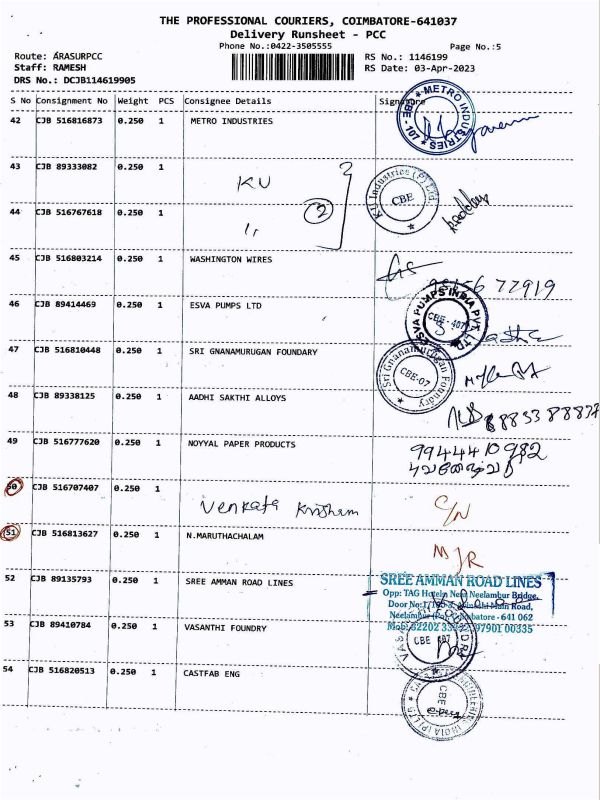 THE PROFESSIONAL COURIERS, COIMBATORE-641037
Delivery Runsheet - PCC
Phone No.:0422-3505555 Page No.:5
Route: ARASURPCC RS No.: 1146199
Staff: RAMESH RS Date: 03-Apr-2023
DRS No.: DCJB114619905
S No Consignment No Weight PCS Consignee Details Signature
42 CJB 516816873 0.250 1 METRO INDUSTRIES
METRO INDUSTRIES CBE-107
43 CJB 89333082 0.250 1 KU
KU Industries (P) Ltd. CBE
2
44 CJB 516767618 0.250 1 1r
45 CJB 516803214 0.250 1 WASHINGTON WIRES
77919
46 CJB 89414469 0.250 1 ESVA PUMPS LTD
ESVA PUMPS INDIA PVT. LTD. CBE - 407
47 CJB 516810448 0.250 1 SRI GNANAMURUGAN FOUNDARY
Sri Gnanamurugan Foundry CBE-07
48 CJB 89338125 0.250 1 AADHI SAKTHI ALLOYS
49 CJB 516777620 0.250 1 NOYYAL PAPER PRODUCTS 9944410982
50 CJB 516707407 0.250 1 Venkata Krisham C/N
51 CJB 516813627 0.250 1 N.MARUTHACHALAM MJR
52 CJB 89135793 0.250 1 SREE AMMAN ROAD LINES
SREE AMMAN ROAD LINES
Opp: TAG Hotels, Near Neelambur Bridge,
Main Road,
Coimbatore - 641 062
97901 00335
53 CJB 89410784 0.250 1 VASANTHI FOUNDRY
CBE 407
54 CJB 516820513 0.250 1 CASTFAB ENG
CBE